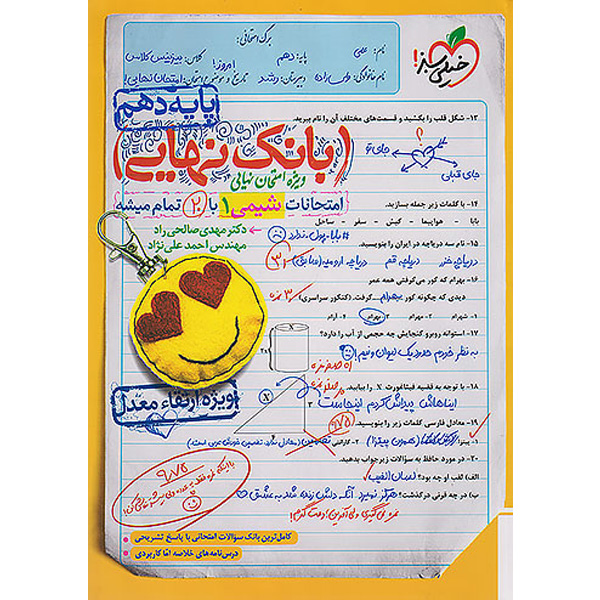 برگ امتحانی:
نام: علمی
پایه: دهم
کلاس: بیزینس کلاس
امروز!
نام خانوادگی:
دبیرستان: رشد
تاریخ و موضوع امتحان: امتحان نهایی!
خیلی سبز!
پایه دهم
بانک نهایی
ویژه امتحان نهایی
امتحانات شیمی ۱ با ۲۰ تمام میشه
دکتر مهدی صالحی راد
مهندس احمد علی نژاد
۱۳- شکل قلب را بکشید و قسمت‌های مختلف آن را نام ببرید.
جای تو
جای قبلی
۱۴- با کلمات زیر جمله بسازید.
بابا - هواپیما - کیش - سفر - ساحل
#بابا_پول_ندارد
۱۵- نام سه دریاچه در ایران را بنویسید.
دریاچه خزر دریاچه قم دریاچه ارومیه
۱۶- بهرام که گور می‌گرفتی همه عمر
دیدی که چگونه گور بهرام گرفت. (کنکور سراسری)
۳ نمره
۱- شهرام ۲- مهرام ۳- بهرام ۴- آرام
۱۷- استوانه روبرو گنجایش چه حجمی از آب را دارد؟
به نظر خودم حدود یک لیوان و نیم!
X
۱۸- با توجه به قضیه فیثاغورث، X را بیابید.
ایناهاش پیداش کردم اینجاست
X
۳
ویژه ارتقاء معدل
۱۹- معادل فارسی کلمات زیر را بنویسید.
۱- پیتزا:
(همون پیتزا)
۲- گارانتی: تضمین
۲۰- در مورد حافظ به سوالات زیر جواب بدهید.
الف) لقب او چه بود؟ لسان الغیب
ب) در چه قرنی درگذشت؟ هرگز نمیرد آنکه دلش زنده شد به عشق
۹/۷۵
کامل‌ترین بانک سوالات امتحانی با پاسخ تشریحی
درس‌نامه‌های خلاصه اما کاربردی